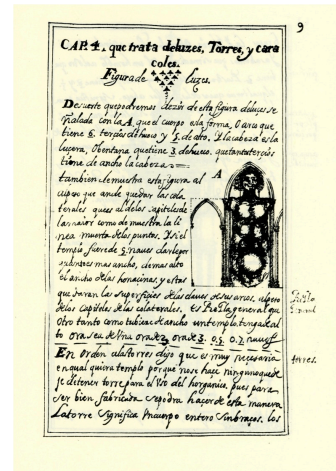 9
CAP. 4. que trata deluzes, Torres, y cara
coles.
Figura de luzes.
Desuerte quepodremos dezir de esta figura deluces se
ñalada con la A, que el cuerpo es la forma, O arco que
tiene 6. tercios de hueco y 5. de alto. I la cabeza es la
lucera, Oventana que tiene 3 de hueco, que tantos tercios
tiene de ancho la cabeza =
tambien demuestra esta figura al
cuerpo que an de quedar las cola
terales que es al de los capiteles de
la maior como demuestra la li
nea muerta de los puntos. I si el
templo fuere de 5 naves darle por
mas ancho, demas alto
el ancho de las hornacinas, y estas
que seran las superficies de las claves de sus arcos, al peso
de los capiteles de las colaterales. es Regla general que
Otro tanto como tubiere de ancho un templo, tenga de al
to ora sea de Una ora de 2 ora de 3. o 5. o 7. naves
En orden a las torres digo que es muy necesaria
en qual quiera templo porque nos hace ninguno que de
je de tener torre para el Uso del horganico, pues para
ser bien fabricada se podra hacer de esta manera
La torre significa Un cuerpo entero sin brazos, los
A
Regla
torres.